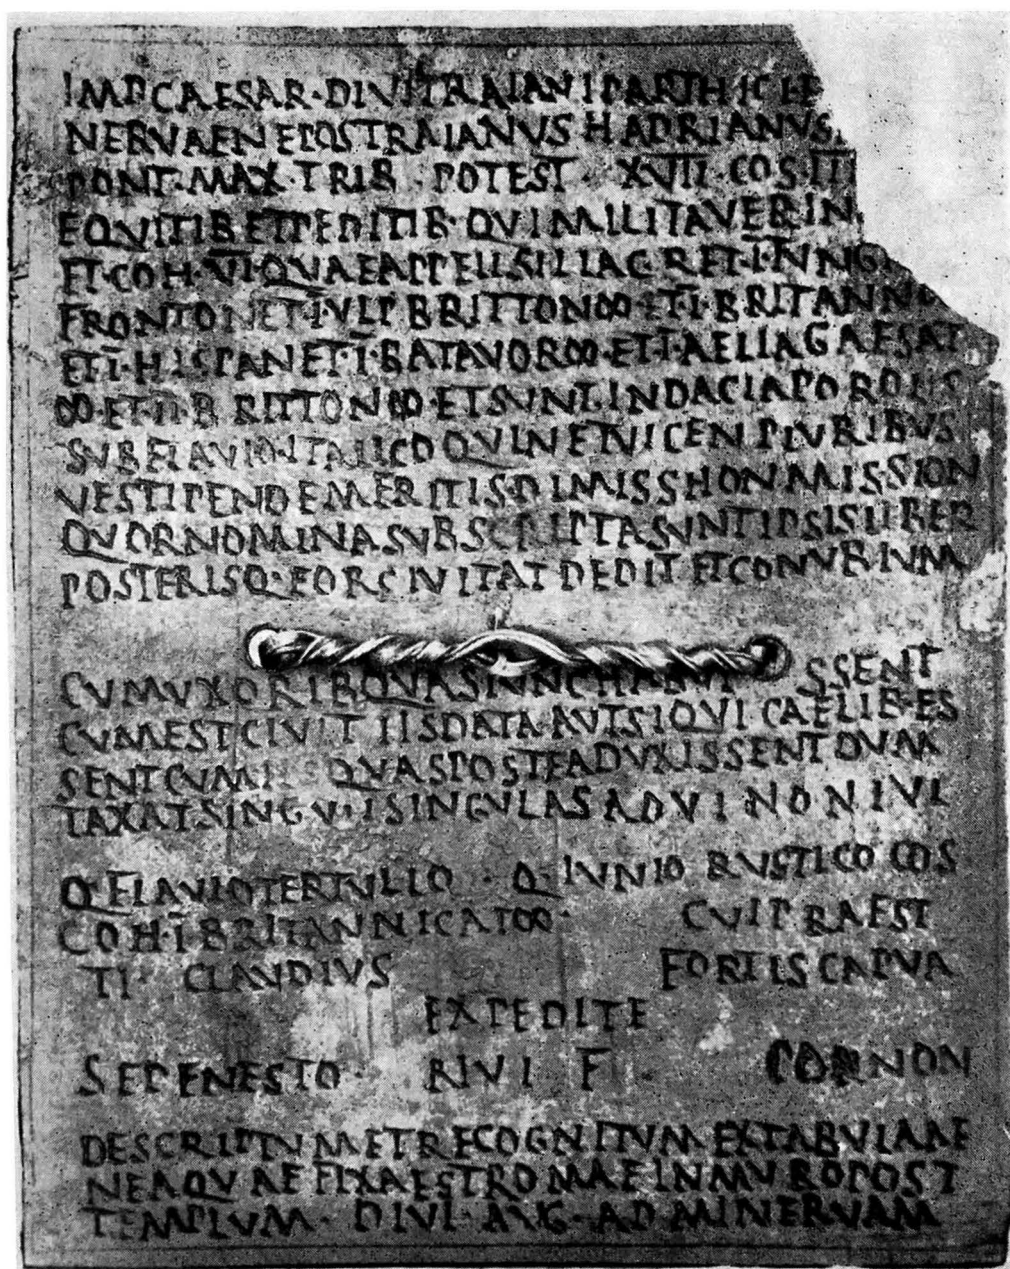 IMP CAESAR · DIVI TRAIANI PARTHICI F
NERVAE NEPOS TRAIANVS HADRIANVS
PONT · MAX · TRIB · POTEST · XVII · COS · III
EQVITIB ET PEDITIB · QVI MILITAVER IN
ET · COH · VI · QVAE APPELL SILI AC R ET · I · TVNG
FRONTON ET · I · VLP BRITTON ∞ ET · I · BRITANN
ET I · HISPAN ET · I · BATAVOR ∞ · ET · I · AELIA GAESAT
∞ · ET · II · BRITTON ∞ · ET SVNT IN DACIA POROLIS
SVB FLAVIO ITALICO QVIN ET VICEN PLVRIBVS
VE STIPEND EMERITIS DIMISS HON MISSION
QVOR NOMINA SVBSCRIPTA SVNT IPSIS LIBER
POSTERISQ · EOR CIVITAT DEDIT ET CONVBIVM
CVM VXORIB QVAS TVNC HABVI SSENT
CVM EST CIVIT IIS DATA AVT SI QVI CAELIB ES
SENT CVM IIS QVAS POST EA DVXISSENT DVM
TAXAT SINGVLI SINGVLAS A D VI · NON IVL
Q FLAVIO TERTVLLO · Q · IVNIO RVSTICO COS
COH · I BRITANNICAE ∞ · CVI PRAEST
TI · CLAVDIVS FORTIS CAPVA
EXPEDITE
SEPENESTO · RIVI F · PANNON
DESCRIPTVM ET RECOGNITVM EX TABVLA AE
NEA QVAE FIXA EST ROMAE IN MVRO POST
TEMPLVM · DIVI · AVG · AD MINERVAM